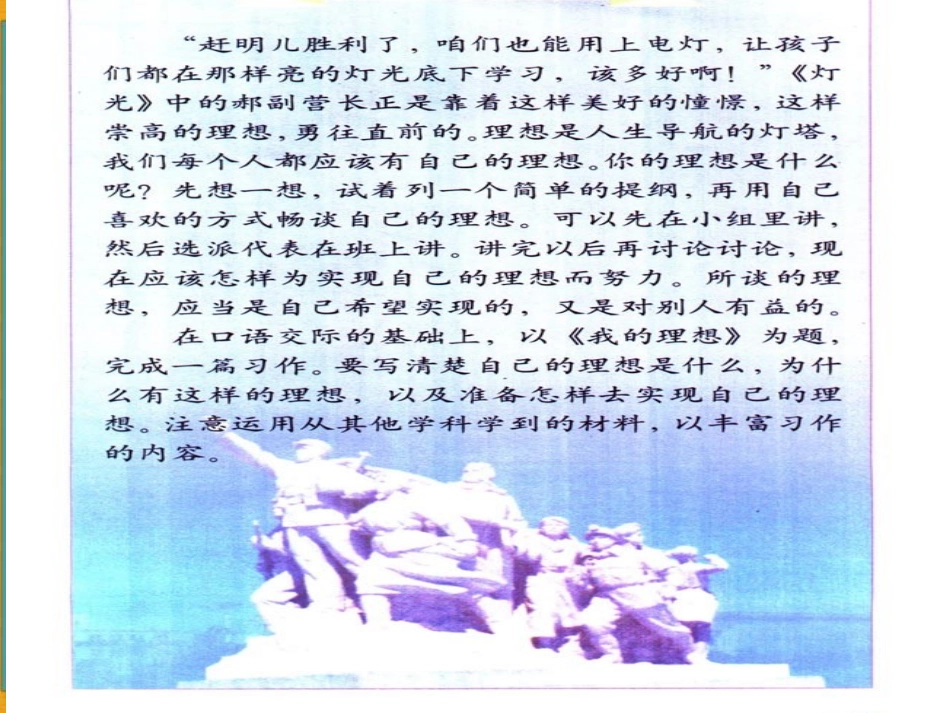 “赶明儿胜利了，咱们也能用上电灯，让孩子
们都在那样亮的灯光底下学习，该多好啊！”《灯
光》中的郝副营长正是靠着这样美好的憧憬，这样
崇高的理想，勇往直前的。理想是人生导航的灯塔，
我们每个人都应该有自己的理想。你的理想是什么
呢？先想一想，试着列一个简单的提纲，再用自己
喜欢的方式畅谈自己的理想。可以先在小组里讲，
然后选派代表在班上讲。讲完以后再讨论讨论，现
在应该怎样为实现自己的理想而努力。所谈的理
想，应当是自己希望实现的，又是对别人有益的。
在口语交际的基础上，以《我的理想》为题，
完成一篇习作。要写清楚自己的理想是什么，为什
么有这样的理想，以及准备怎样去实现自己的理
想。注意运用从其他学科学到的材料，以丰富习作
的内容。